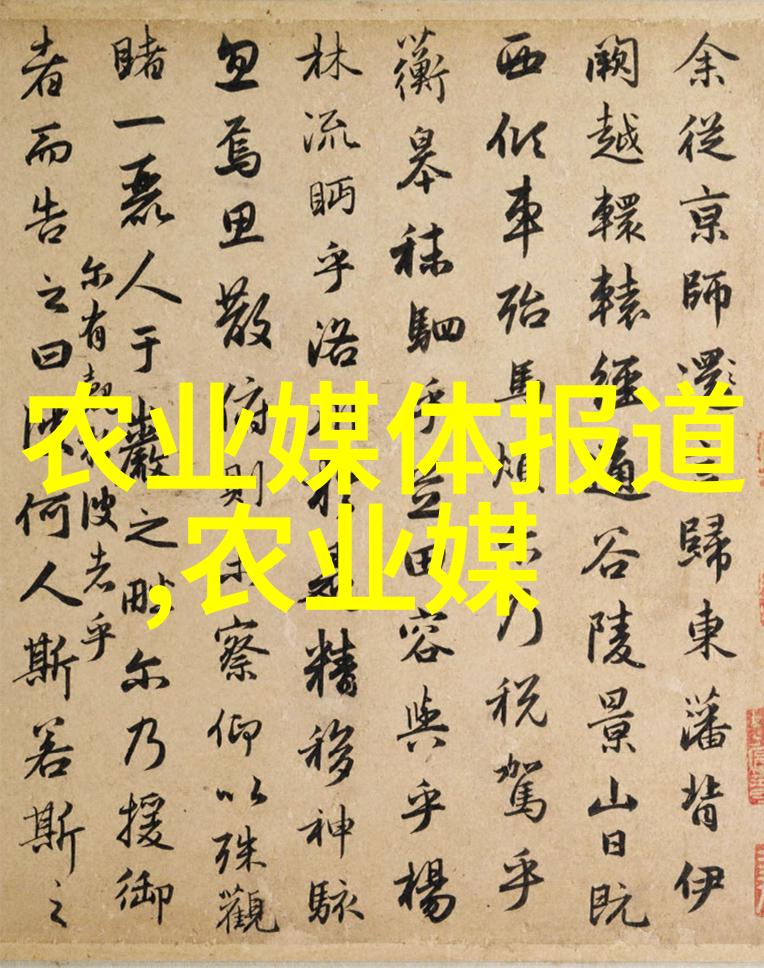 农业媒体报道
,农业媒
余從京師還言歸東藩背伊
闕越轘轅經通谷陵景山日既
西傾車殆馬煩尔乃税駕乎
蘅皋秣駟乎芝田容與乎楊
林流眄乎洛川於是精移神駭
忽焉思散俯則未察仰以殊觀
睹一麗人于巖之畔尔乃援御
尔有覿於彼者乎
者而告之曰彼何人斯若斯之